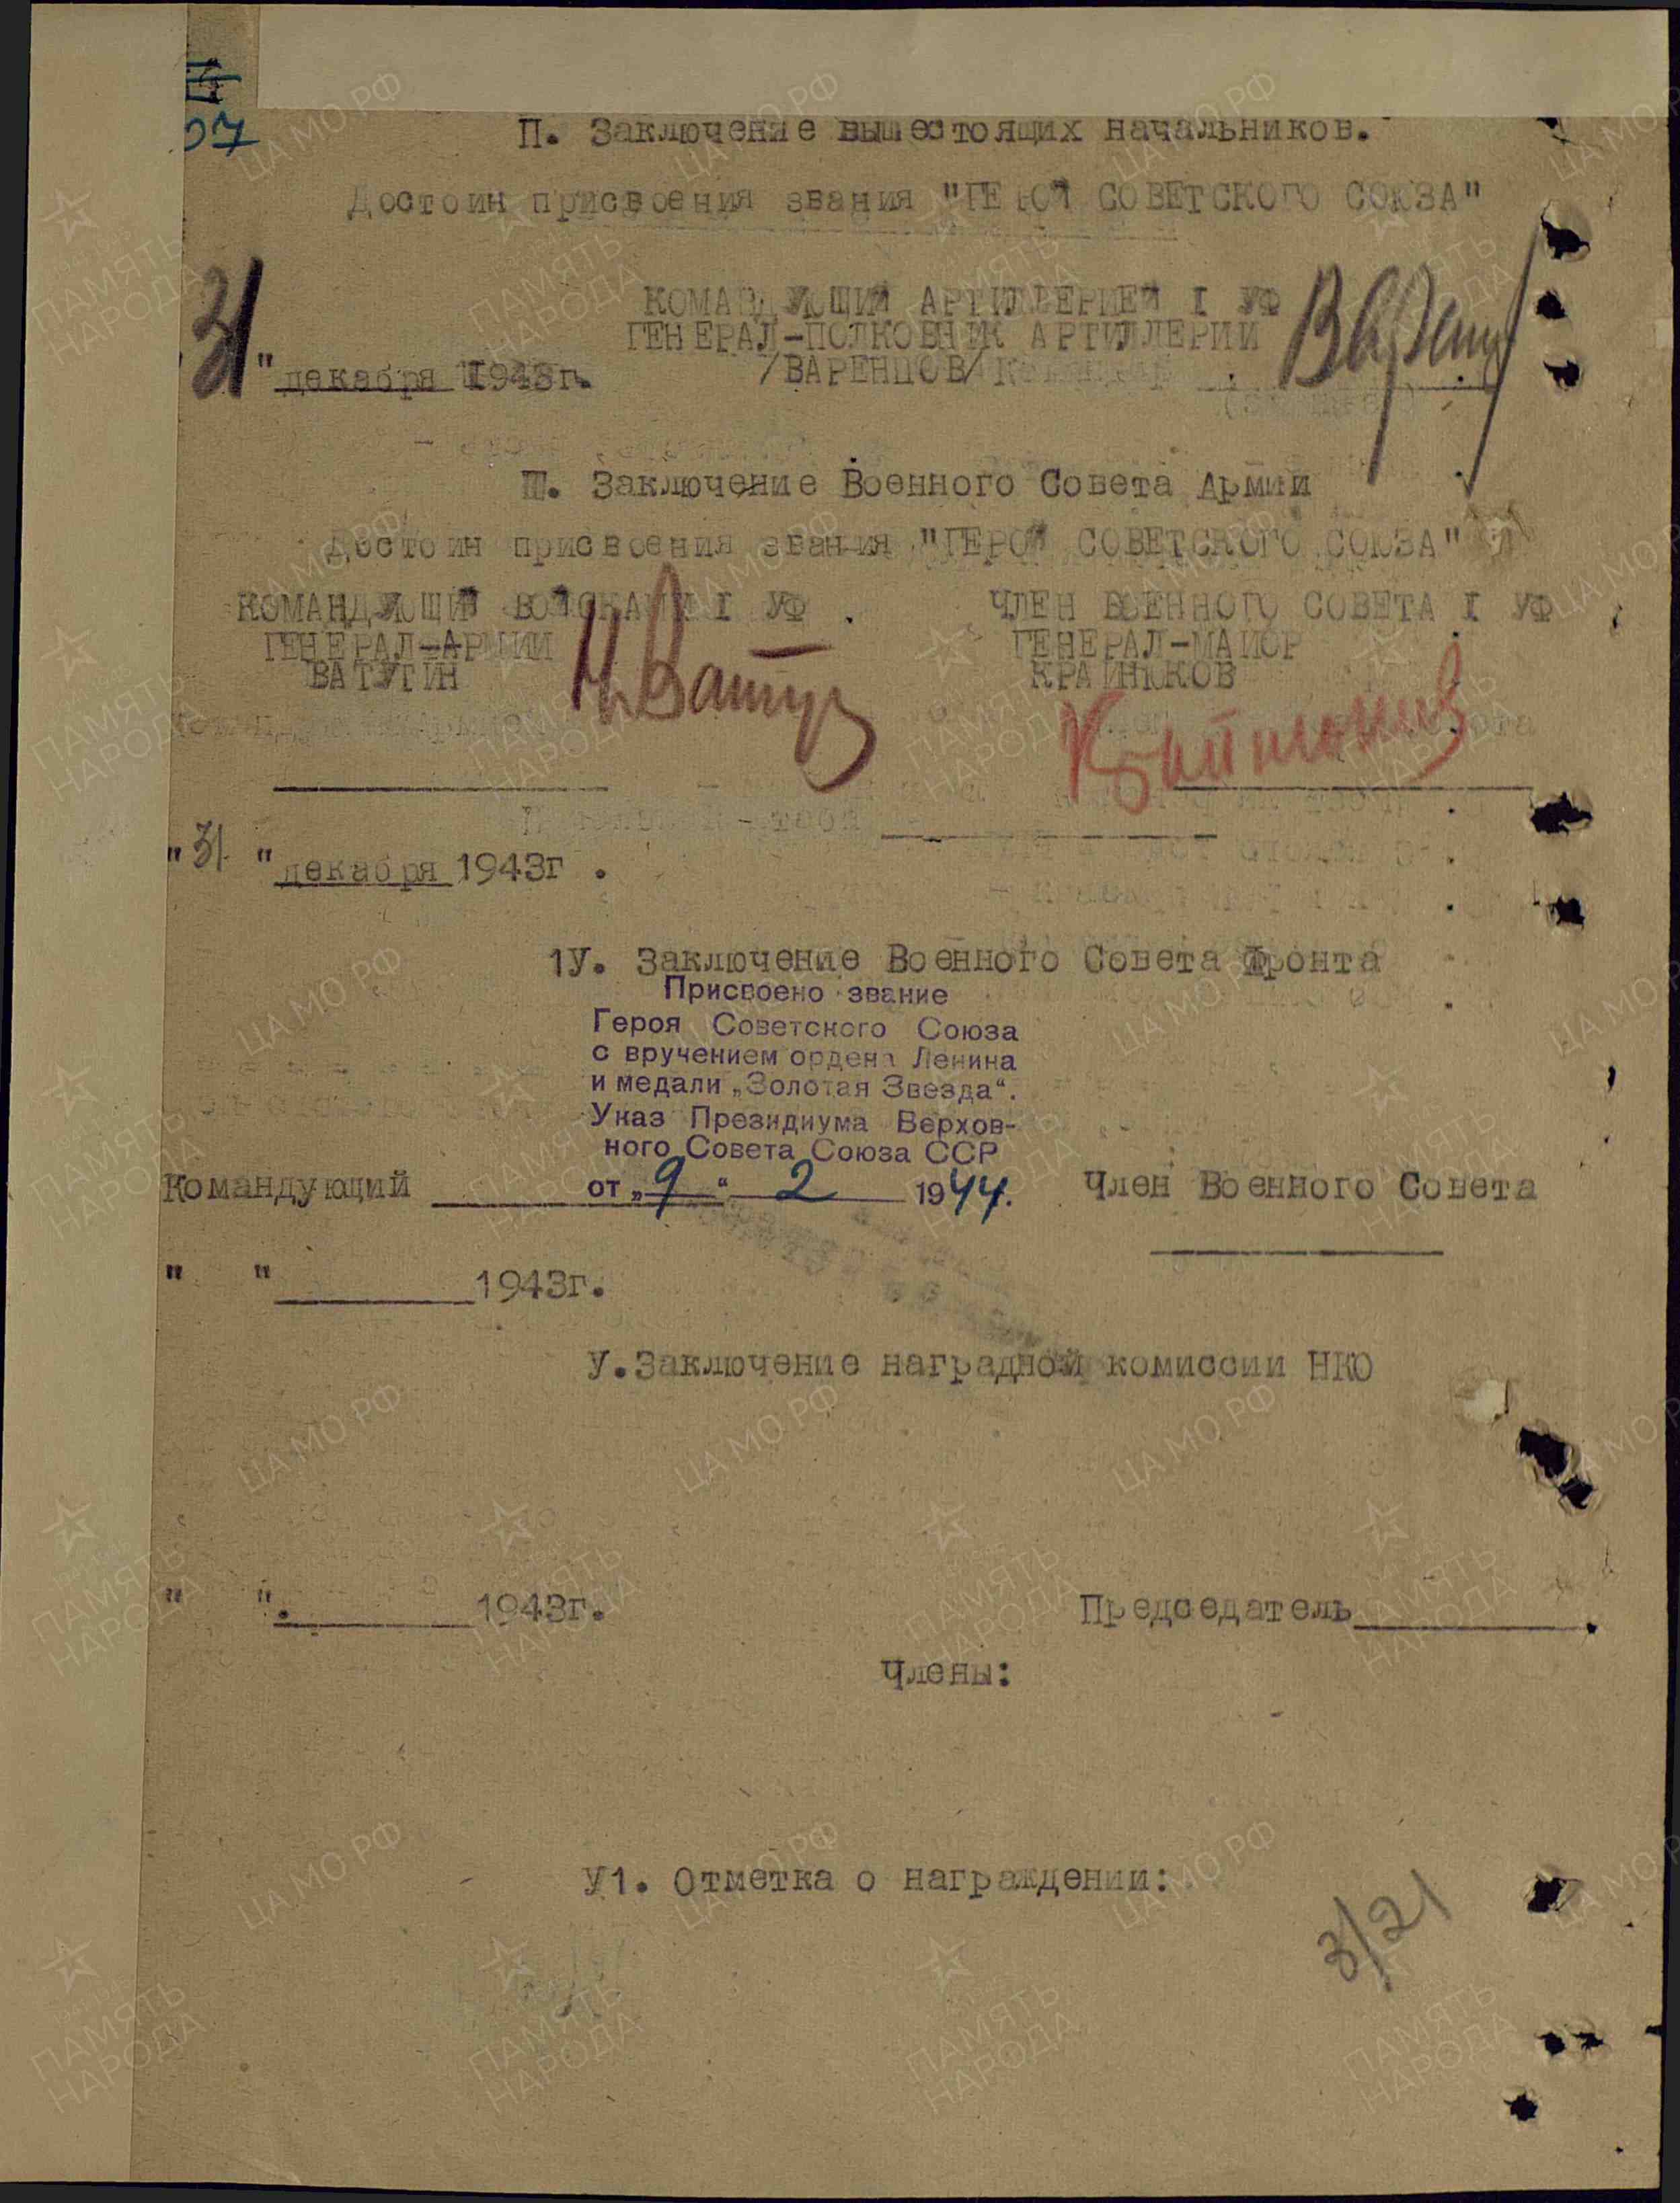 П. Заключение вышестоящих начальников.
Достоин присвоения звания "ГЕРОЙ СОВЕТСКОГО СОЮЗА"
КОМАНДУЮЩИЙ АРТИЛЛЕРИЕЙ I УФ
ГЕНЕРАЛ-ПОЛКОВНИК АРТИЛЛЕРИИ
/ВАРЕНЦОВ/
31 " декабря 1943г.
Ш. Заключение Военного Совета Армии
Достоин присвоения звания "ГЕРОЙ СОВЕТСКОГО СОЮЗА"
КОМАНДУЮЩИЙ ВОЙСКАМИ I УФ
ГЕНЕРАЛ-АРМИИ
ВАТУТИН
ЧЛЕН ВОЕННОГО СОВЕТА I УФ
ГЕНЕРАЛ-МАЙОР
КРАЙНЮКОВ
"31" декабря 1943г.
1У. Заключение Военного Совета Фронта
Присвоено звание
Героя Советского Союза
с вручением ордена Ленина
и медали „Золотая Звезда“.
Указ Президиума Верхов-
ного Совета Союза ССР
от „9“ 2 1944.
Командующий
Член Военного Совета
" " 1943г.
У.Заключение наградной комиссии НКО
" ". 1943г.
Председатель
Члены:
У1. Отметка о награждении:
3/21
ЦА МО РФ
ПАМЯТЬ
НАРОДА